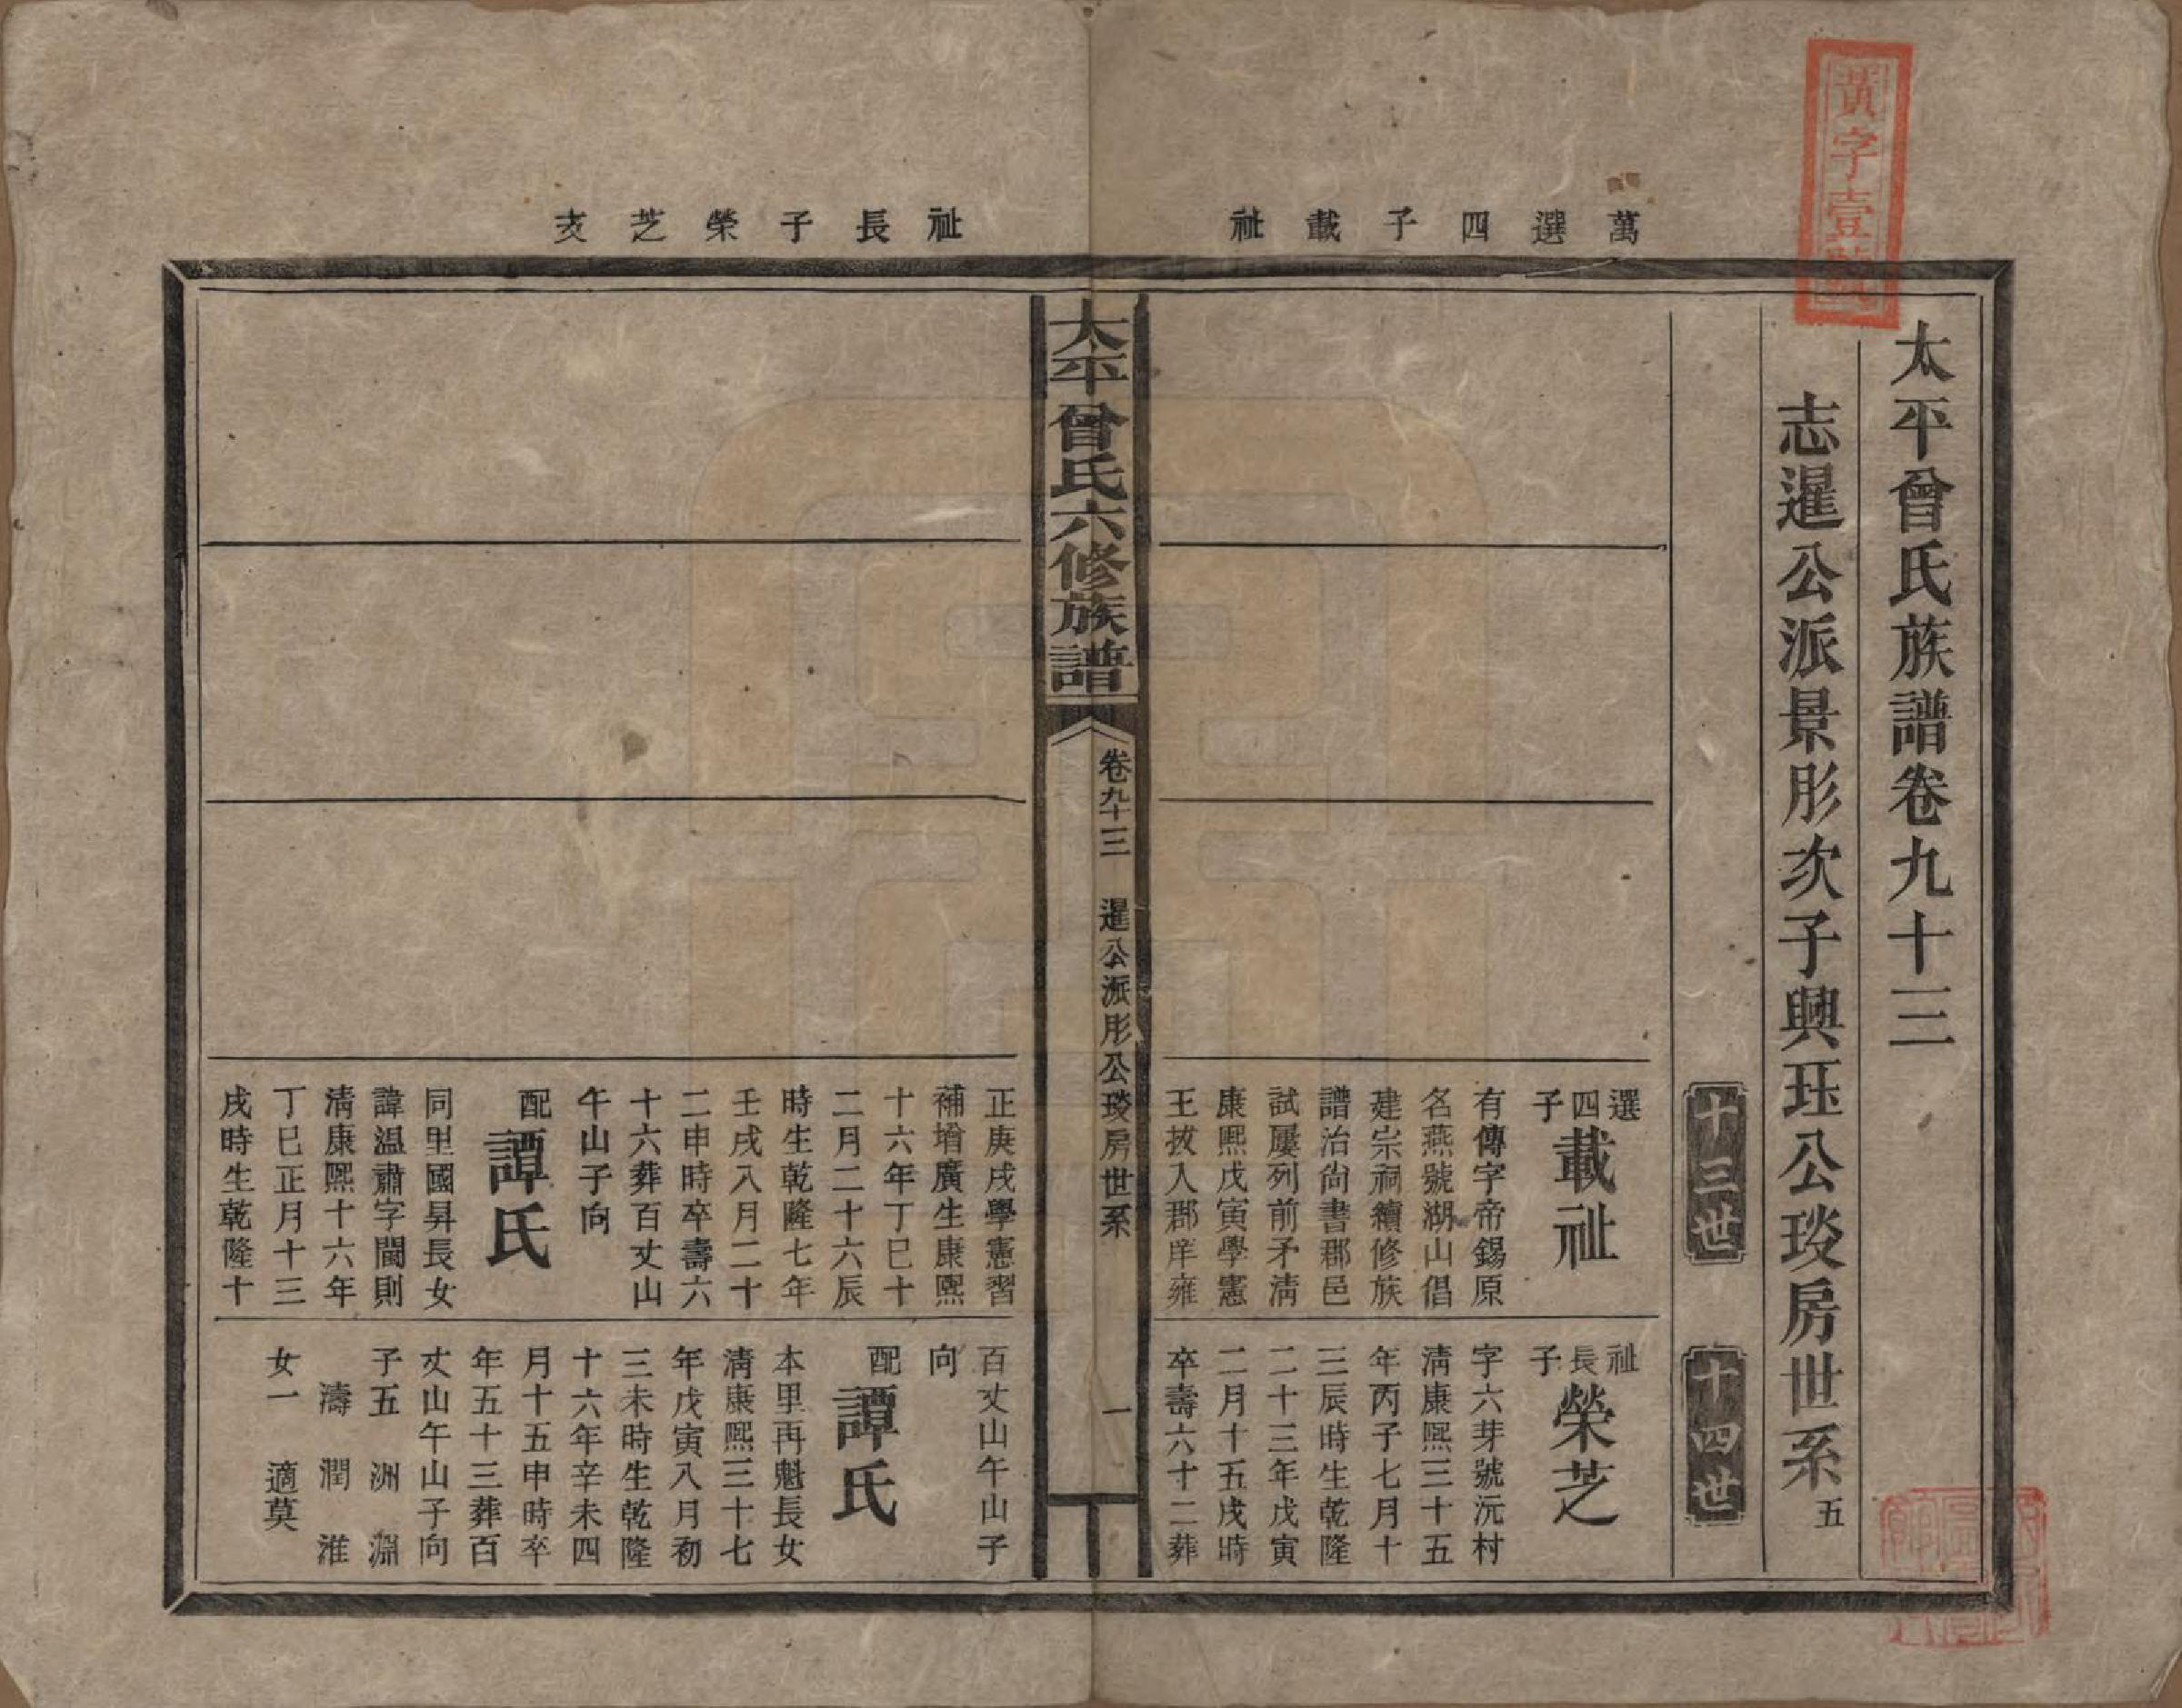 黃字壹號
萬選四子載祉
祉長子榮芝支
太平曾氏族譜卷九十三
志暹公派景彤次子興珏公琰房世系五
十三世
十四世
選四子載祉
有傳字帝錫原
名燕號湖山倡
建宗祠續修族
譜治尚書郡邑
試屢列前矛清
康熙戊寅學憲
王拔入郡庠雍
祉長子榮芝
字六芽號沅村
清康熙三十五
年丙子七月十
三辰時生乾隆
二十三年戊寅
二月十五戌時
卒壽六十二葬
太平曾氏六修族譜
卷九十三 暹公派彤公琰房世系 一
正庚戌學憲習
補增廣生康熙
十六年丁巳十
二月二十六辰
時生乾隆七年
壬戌八月二十
二申時卒壽六
十六葬百丈山
午山子向
配譚氏
同里國昇長女
諱温肅字閫則
清康熙十六年
丁巳正月十三
戌時生乾隆十
百丈山午山子
向
配譚氏
本里再魁長女
清康熙三十七
年戊寅八月初
三未時生乾隆
十六年辛未四
月十五申時卒
年五十三葬百
丈山午山子向
子五 洲 淵
濤 潤 淮
女一 適莫